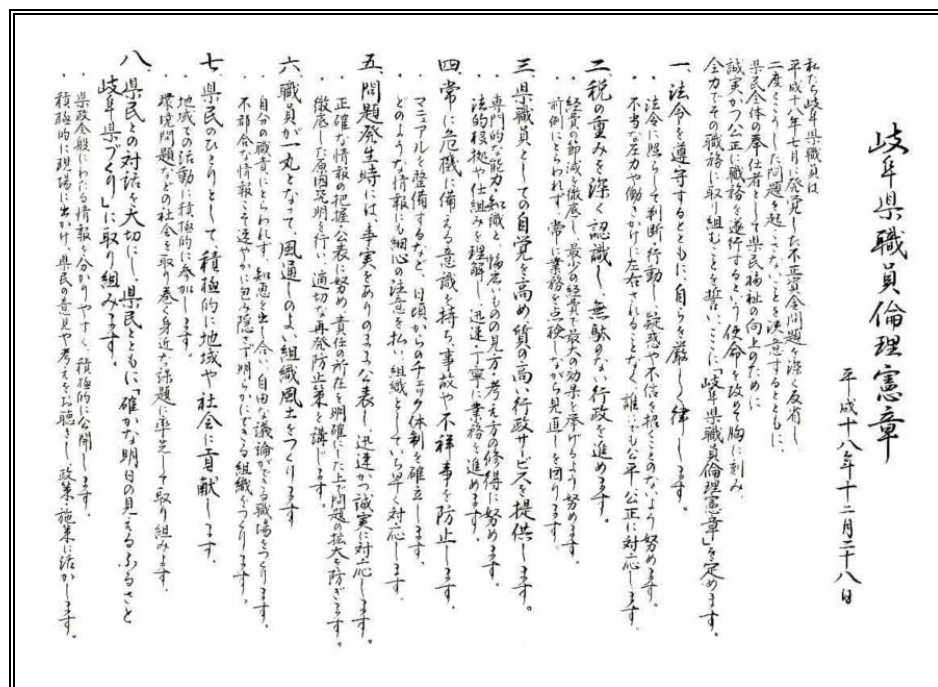 岐阜県職員倫理憲章
平成十八年十二月二十八日
私たち岐阜県職員は
平成十八年七月に発覚した不正資金問題を深く反省し、
二度とこうした問題を起こさないことを決意するとともに、
県民全体の奉仕者として県民福祉の向上のために
誠実かつ公正に職務を遂行するという使命を改めて胸に刻み
全力でその職務に取り組むことを誓い、ここに「岐阜県職員倫理憲章」を定めます。
一、法令を遵守するとともに、自らを厳しく律します。
・法令に照らして判断・行動し、疑惑や不信を招くことのないよう努めます。
・不当な圧力や働きかけに左右されることなく、誰にでも公平・公正に対応します。
二、税の重みを深く認識し、無駄のない行政を進めます。
・経費の節減を徹底し、最少の経費で最大の効果を挙げるよう努めます。
・前例にとらわれず、常に業務を点検しながら見直しを図ります。
三、県職員としての自覚を高め、質の高い行政サービスを提供します。
・専門的な能力・知識と、幅広いものの見方・考え方の修得に努めます。
・法的根拠や仕組みを理解し、迅速・丁寧に業務を進めます。
四、常に危機に備える意識を持ち、事故や不祥事を防止します。
・マニュアルを整備するなど、日頃からのチェック体制を確立します。
・どのような情報にも細心の注意を払い、組織としていち早く対応します。
五、問題発生時には、事実をありのままに公表し、迅速かつ誠実に対応します。
・正確な情報の把握・公表に努め、責任の所在を明確にした上で問題の拡大を防ぎます。
・徹底した原因究明を行い、適切な再発防止策を講じます。
六、職員が一丸となって、風通しのよい組織風土をつくります。
・自分の職責にとらわれず、知恵を出し合い、自由な議論ができる職場をつくります。
・不都合な情報こそ速やかに包み隠さず明らかにできる組織をつくります。
七、県民のひとりとして、積極的に地域や社会に貢献します。
・地域での活動に積極的に参加します。
・環境問題などの社会を取り巻く身近な課題に率先して取り組みます。
八、県民との対話を大切にし、県民とともに「確かな明日の見えるふるさと
岐阜県づくり」に取り組みます。
・県政全般にわたる情報を分かりやすく、積極的に公開します。
・積極的に現場に出かけ、県民の意見や考えをお聴きし、政策・施策に活かします。